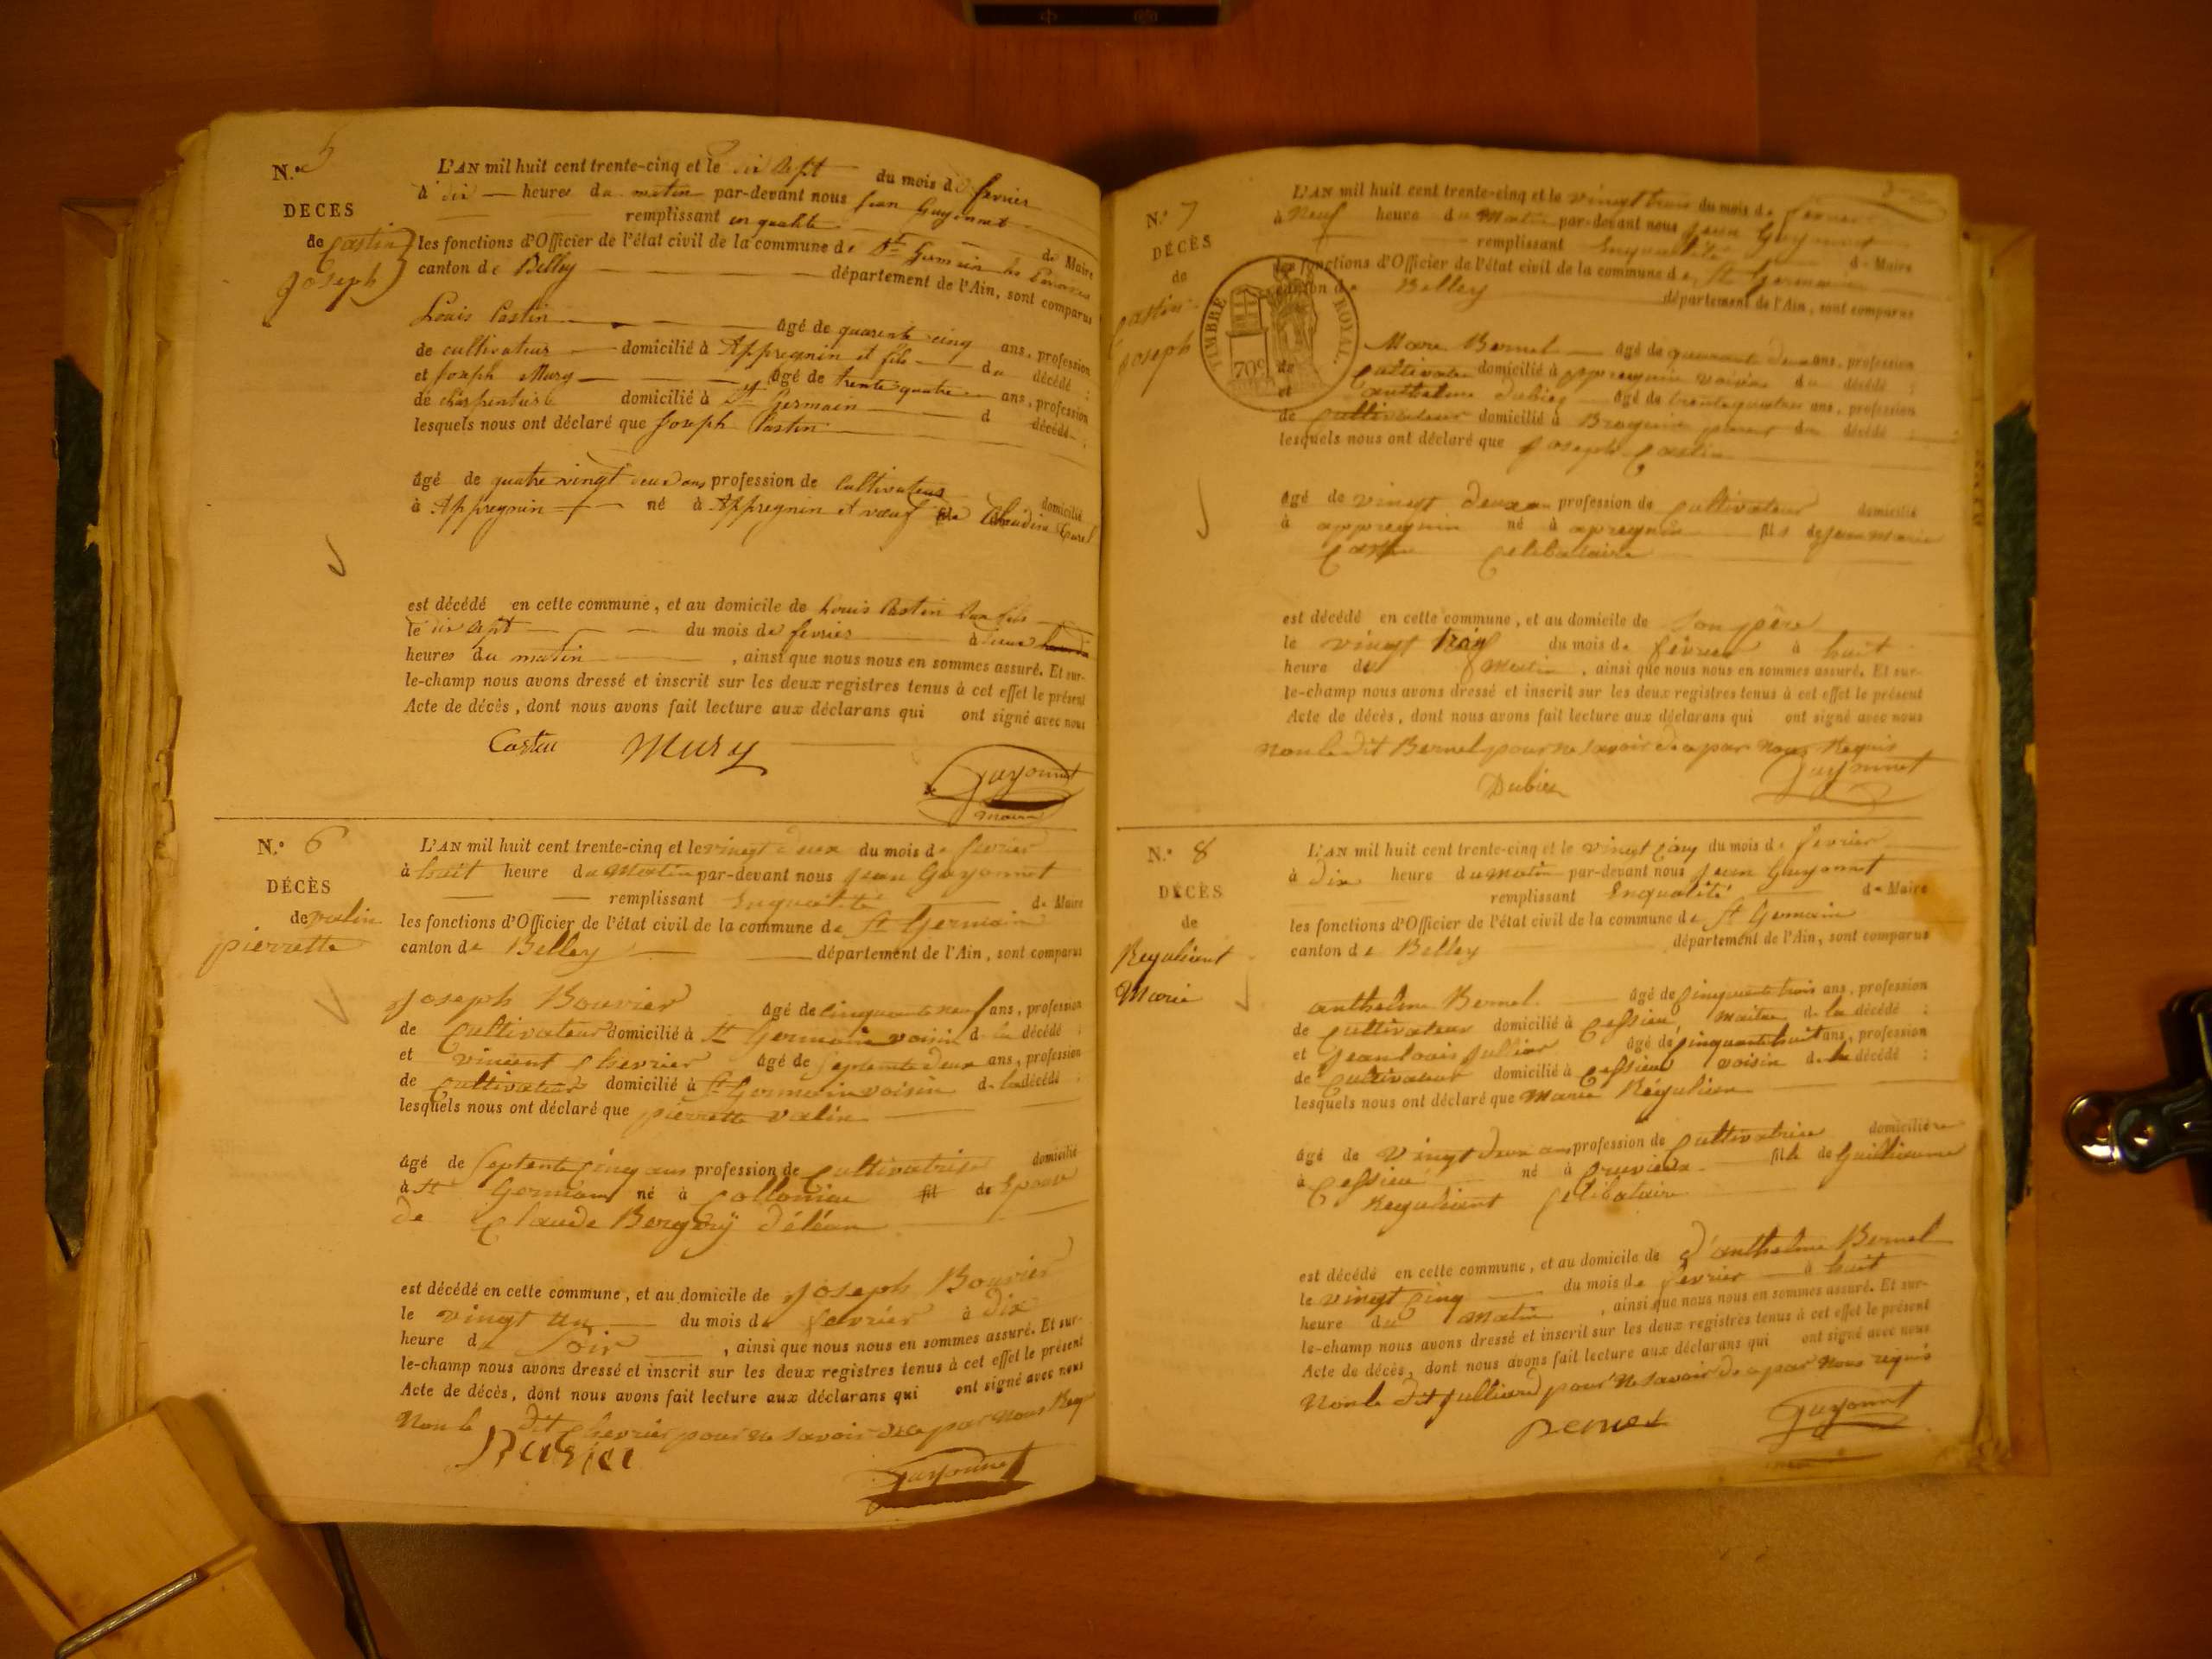 N.º 5
DECES
de Castin
Joseph
L'AN mil huit cent trente-cinq et le dix sept du mois de fevrier
à dix heures du matin par-devant nous Jean Guyonnet
remplissant en qualité de Maire
les fonctions d'Officier de l'état civil de la commune de St Germain les Paroisses
canton de Belley département de l'Ain, sont comparus
Louis Castin âgé de quarente cinq ans, profession
de cultivateur domicilié à Appregnin et fils du décédé ;
et Joseph Mury âgé de trente quatre ans, profession
de charpentier domicilié à St Germain d décédé ;
lesquels nous ont déclaré que Joseph Castin
âgé de quatre vingt deux ans profession de Cultivateur domicilié
à Appregnin né à Appregnin et vœuf de Claudine
est décédé en cette commune, et au domicile de Louis Castin son fils
le dix sept du mois de fevrier à deux
heures du matin , ainsi que nous nous en sommes assuré. Et sur-
le-champ nous avons dressé et inscrit sur les deux registres tenus à cet effet le présent
Acte de décès, dont nous avons fait lecture aux déclarans qui ont signé avec nous
Castin Mury
Guyonnet
maire
N.º 6
DÉCÈS
de valin
pierrette
L'AN mil huit cent trente-cinq et le vingt deux du mois de fevrier
à huit heure du Matin par-devant nous Jean Guyonnet
remplissant Enqualité de Maire
les fonctions d'Officier de l'état civil de la commune de St Germain
canton de Belley département de l'Ain, sont comparus
Joseph Bouvier âgé de Cinquante neuf ans, profession
de Cultivateur domicilié à St Germain voisin d la décédé ;
et vincent Chevrier âgé de Septente deux ans, profession
de Cultivateur domicilié à St Germain voisin de la décédé ;
lesquels nous ont déclaré que pierrette valin
âgé de Septente Cinq ans profession de Cultivatrice domicilié
à St Germain né à Collonieu fil de Epouse
de Claude
est décédé en cette commune, et au domicile de Joseph Bouvier
le vingt un du mois de fevrier à dix
heure d Soir , ainsi que nous nous en sommes assuré. Et sur-
le-champ nous avons dressé et inscrit sur les deux registres tenus à cet effet le présent
Acte de décès, dont nous avons fait lecture aux déclarans qui ont signé avec nous
Non le dit Chevrier pour ne savoir de ce par nous Requis
Guyonnet
N.º 7
DÉCÈS
de
Castin
Joseph
L'AN mil huit cent trente-cinq et le vingt trois du mois de fevrier
à Neuf heure du Matin par-devant nous Jean Guyonnet
remplissant Enqualité de Maire
les fonctions d'Officier de l'état civil de la commune de St Germain
canton de Belley département de l'Ain, sont comparus
TIMBRE ROYAL.
70c
Marc Bernel âgé de quarante deux ans, profession
de Cultivateur domicilié à appregnin voisin du décédé ;
et anthelme Dubien âgé de trente quatre ans, profession
de Cultivateur domicilié à parent du décédé
lesquels nous ont déclaré que Joseph Castin
âgé de vingt deux an profession de Cultivateur domicilié
à appregnin né à apregnin fils de Jean Marie
Castin Celibataire
est décédé en cette commune, et au domicile de Son père
le vingt trois du mois de fevrier à huit
heure du Matin , ainsi que nous nous en sommes assuré. Et sur-
le-champ nous avons dressé et inscrit sur les deux registres tenus à cet effet le présent
Acte de décès, dont nous avons fait lecture aux déclarans qui ont signé avec nous
Non le dit Bernel pour ne savoir de ce par Nous Requis
Dubien Guyonnet
N.º 8
DÉCÈS
de
Regulient
Marie
L'AN mil huit cent trente-cinq et le vingt Cinq du mois de fevrier
à dix heure du matin par-devant nous Jean Guyonnet
remplissant Enqualité de Maire
les fonctions d'Officier de l'état civil de la commune de St Germain
canton de Belley département de l'Ain, sont comparus
anthelme Bernel âgé de Cinquante trois ans, profession
de Cultivateur domicilié à Cessieu, Maitre de la décédé ;
et Jean Louis Julliar âgé de Cinquante huit ans, profession
de Cultivateur domicilié à Cessieu voisin de la décédé ;
lesquels nous ont déclaré que Marie Régulien
âgé de vingt deux ans profession de Cultivatrice domicilié
à Cessieu né à Pruvieux fille de Guilleaume
Regulient Celibataire
est décédé en cette commune, et au domicile de d'anthelme Bernel
le vingt Cinq du mois de fevrier à huit
heure du Matin , ainsi que nous nous en sommes assuré. Et sur-
le-champ nous avons dressé et inscrit sur les deux registres tenus à cet effet le présent
Acte de décès, dont nous avons fait lecture aux déclarans qui ont signé avec nous
Non le dit Julliard pour Ne savoir de ce par Nous requis
Guyonnet